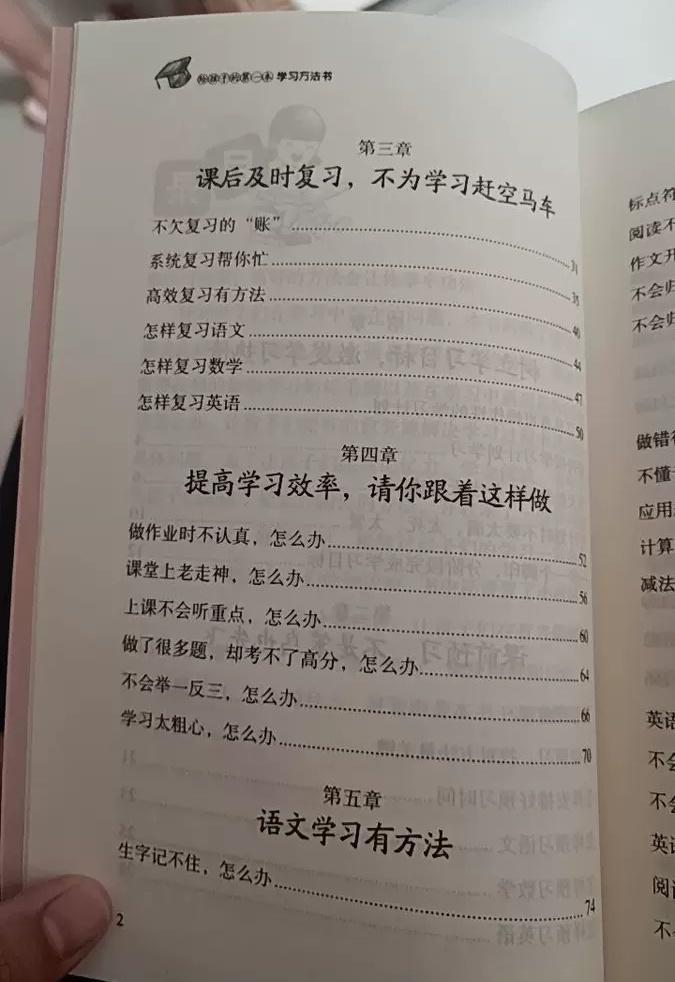 给孩子的第一本 学习方法书
第三章
课后及时复习，不为学习赶空马车
不欠复习的“账”……31
系统复习帮你忙……35
高效复习有方法……40
怎样复习语文……44
怎样复习数学……47
怎样复习英语……50
第四章
提高学习效率，请你跟着这样做
做作业时不认真，怎么办……52
课堂上老走神，怎么办……56
上课不会听重点，怎么办……60
做了很多题，却考不了高分，怎么办……64
不会举一反三，怎么办……66
学习太粗心，怎么办……70
第五章
语文学习有方法
生字记不住，怎么办……74
2
标点符
阅读不
作文开
不会归
不会归
做错
不懂
应用
计算
减法
英语
不会
不会
英语
阅读
不